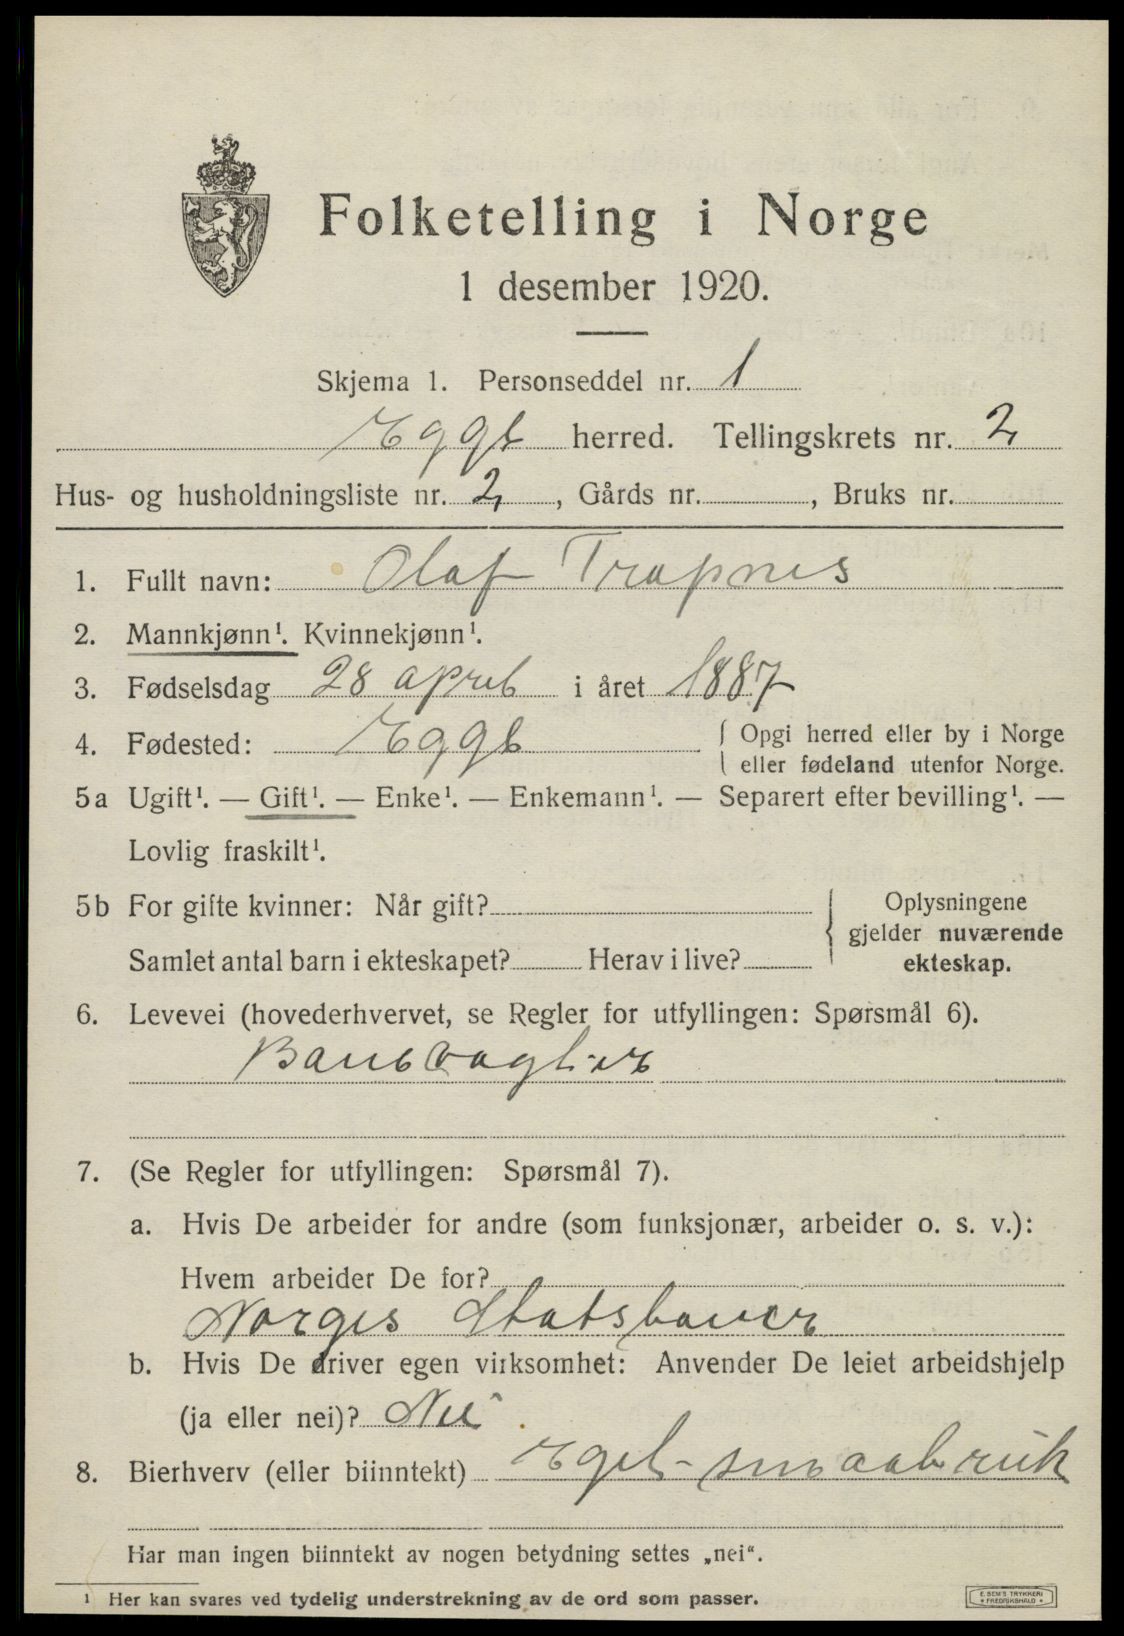 Folketelling i Norge
1 desember 1920.
Skjema 1. Personseddel nr. 1
Egge herred. Tellingskrets nr. 2
Hus- og husholdningsliste nr. 2, Gårds nr. , Bruks nr.
1. Fullt navn: Olaf Trapnes
2. Mannkjønn¹. Kvinnekjønn¹.
3. Fødselsdag 28 april i året 1887
4. Fødested: Egge { Opgi herred eller by i Norge
eller fødeland utenfor Norge.
5a Ugift¹. — Gift¹. — Enke¹. — Enkemann¹. — Separert efter bevilling¹. —
Lovlig fraskilt¹.
5b For gifte kvinner: Når gift?
Samlet antal barn i ekteskapet? Herav i live?
{ Oplysningene
gjelder nuværende
ekteskap.
6. Levevei (hovederhvervet, se Regler for utfyllingen: Spørsmål 6).
Banevogter
7. (Se Regler for utfyllingen: Spørsmål 7).
a. Hvis De arbeider for andre (som funksjonær, arbeider o. s. v.):
Hvem arbeider De for?
Norges Statsbaner
b. Hvis De driver egen virksomhet: Anvender De leiet arbeidshjelp
(ja eller nei)? Nei
8. Bierhverv (eller biinntekt) Eget smaabruk
Har man ingen biinntekt av nogen betydning settes „nei“.
¹ Her kan svares ved tydelig understrekning av de ord som passer.
E. SEM'S TRYKKERI
FREDRIKSHALD